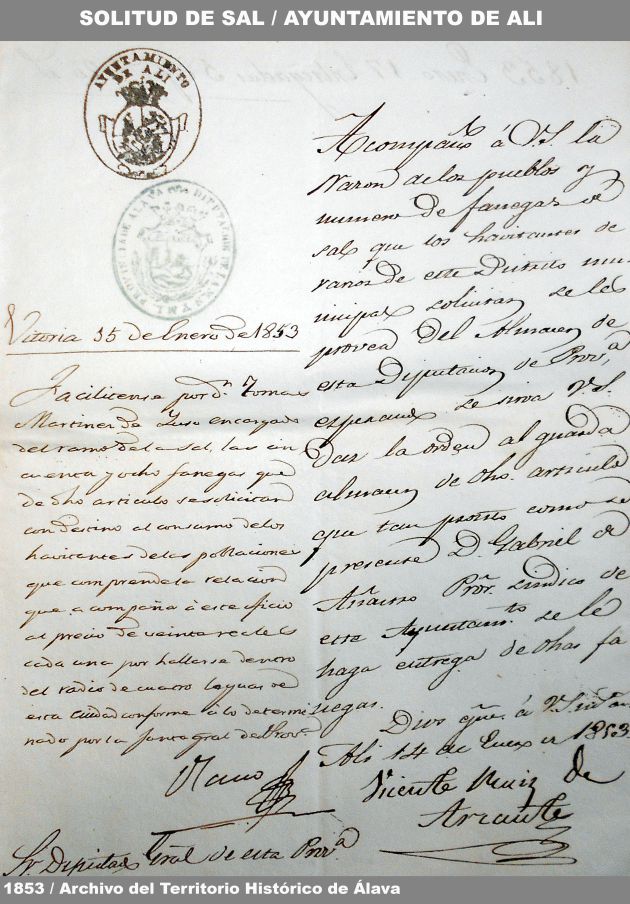 SOLITUD DE SAL / AYUNTAMIENTO DE ALI
AYUNTAMIENTO
DE ALI
Acompaño á V.S. la
razon de los pueblos y
numero de fanegas de
sal que los havitantes de
varios de este Distrito mu-
nicipal solicitan se les
provea del Almacen de
esta Diputacion de Prov.ª
esperando se sirva V.S.
dar la orden al guarda
almacen de dho. articulo
que tan pronto como se
presente D. Gabriel de
Procr. sindico de
este Ayuntam.to se le
haga entrega de dhas fa
negas.
Dios gue. á V.S. m.s an.s
Ali 14 de Enero de 1853
Vicente Ruiz de
Arcaute
Vitoria 15 de Enero de 1853
Facilitense por dn. Tomas
Martinez de encargado
del ramo de la sal, las cin
cuenta y ocho fanegas que
de dho articulo se solicitan
con destino al consumo de los
havitantes de las poblaciones
que comprende la relacion
que acompaña á este oficio
al precio de veinte reales
cada una por hallarse dentro
del radio de cuatro leguas de
esta ciudad conforme á lo determi
nado por la Junta gral de Prov.ª
Olano
Sr. Diputado Gral de esta Prov.ª
1853 / Archivo del Territorio Histórico de Álava